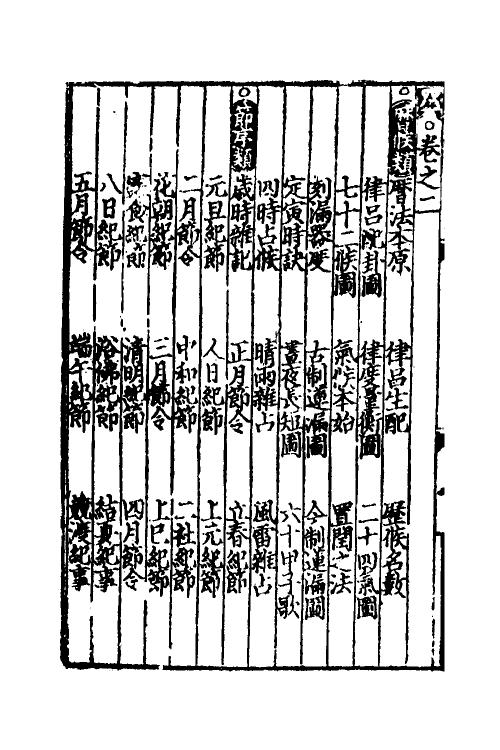 卷之二
曆候類 曆法本原 律呂生配 曆候名數
律呂配卦圖 律度量衡圖 二十四氣圖
七十二候圖 氣候本始 置閏之法
刻漏器度 古制蓮漏圖 今制蓮漏圖
定寅時訣 晝夜長短圖 六十甲子歌
四時占候 晴雨雜占 風雷雜占
節序類 歲時雜記 正月節令 立春紀節
元旦紀節 人日紀節 上元紀節
二月節令 中和紀節 二社紀節
花朝紀節 三月節令 上巳紀節
寒食紀節 清明紀節 四月節令
八日紀節 浴佛紀節 結夏紀事
五月節令 端午紀節 競渡紀事